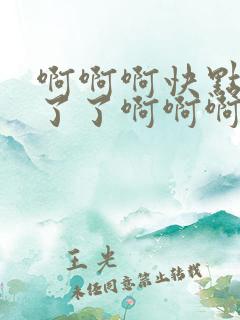 啊啊啊快點
了了啊啊啊
王光
未經同意禁止轉載